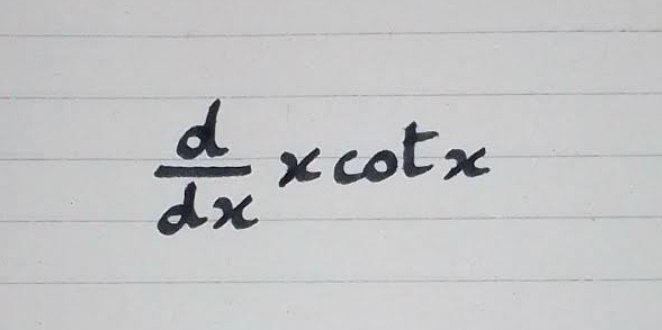 d/dx x cot x